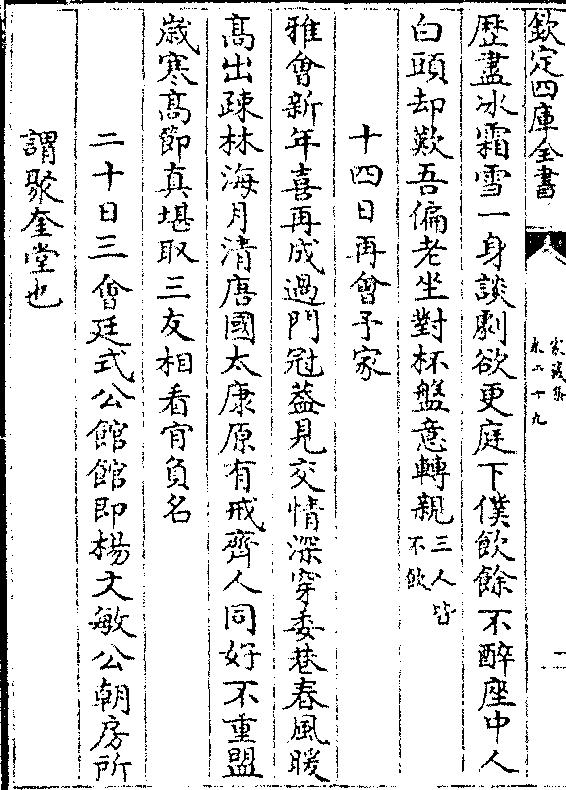 欽定四庫全書
家藏集
卷二十九
歴盡冰霜雪一身談劇欲更庭下僕飲餘不醉座中人
白頭却歎吾偏老坐對杯盤意轉親三人皆不飲
十四日再會予家
雅會新年喜再成過門冠葢見交情深穿委巷春風暖
髙出疎林海月清唐國太康原有戒齊人同好不重盟
嵗寒髙節真堪取三友相看肎負名
二十日三會廷式公館館即楊文敏公朝房所
謂聚奎堂也